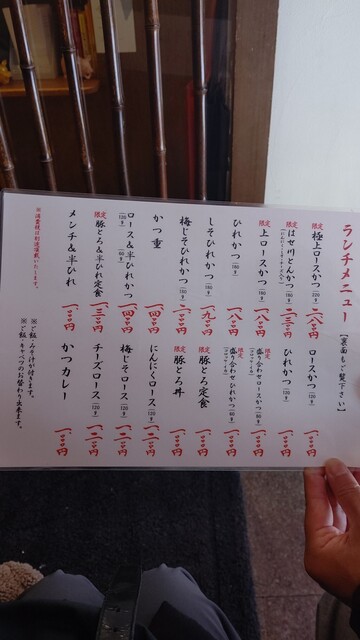 ランチメニュー【裏面もご覧下さい】
限定 極上ロースかつ 220g 二六〇〇円
限定 はせ川とんかつ 180g 二三〇〇円
限定 上ロースかつ 180g 一八〇〇円
ひれかつ 180g 一八〇〇円
しそひれかつ 180g 一九〇〇円
梅じそひれかつ 180g 二〇〇〇円
かつ重 一四〇〇円
ロース&半ひれかつ 120g 60g 一四〇〇円
限定 豚とろ&半ひれ定食 一三〇〇円
メンチ&半ひれ 一二〇〇円
ロースかつ 120g 一〇〇〇円
ひれかつ 120g 一〇〇〇円
限定 盛り合わせロースかつ
盛り合わせひれかつ
限定 豚とろ定食 一〇〇〇円
限定 豚とろ丼 一〇〇〇円
にんにくロース 120g 一二〇〇円
梅じそロース 120g 一二〇〇円
チーズロース 120g 一二〇〇円
かつカレー 一〇〇〇円
※ご飯・みそ汁が付きます。
※ご飯・キャベツのお替わり出来ます。
※消費税は別途頂戴いたします。